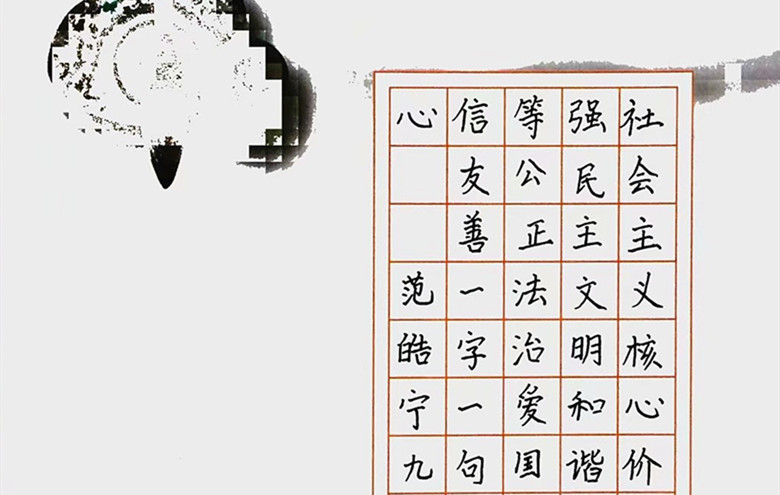 社会主义核心价
强民主文明和谐
等公正法治爱国
信友善一字一句
心范皓宁九